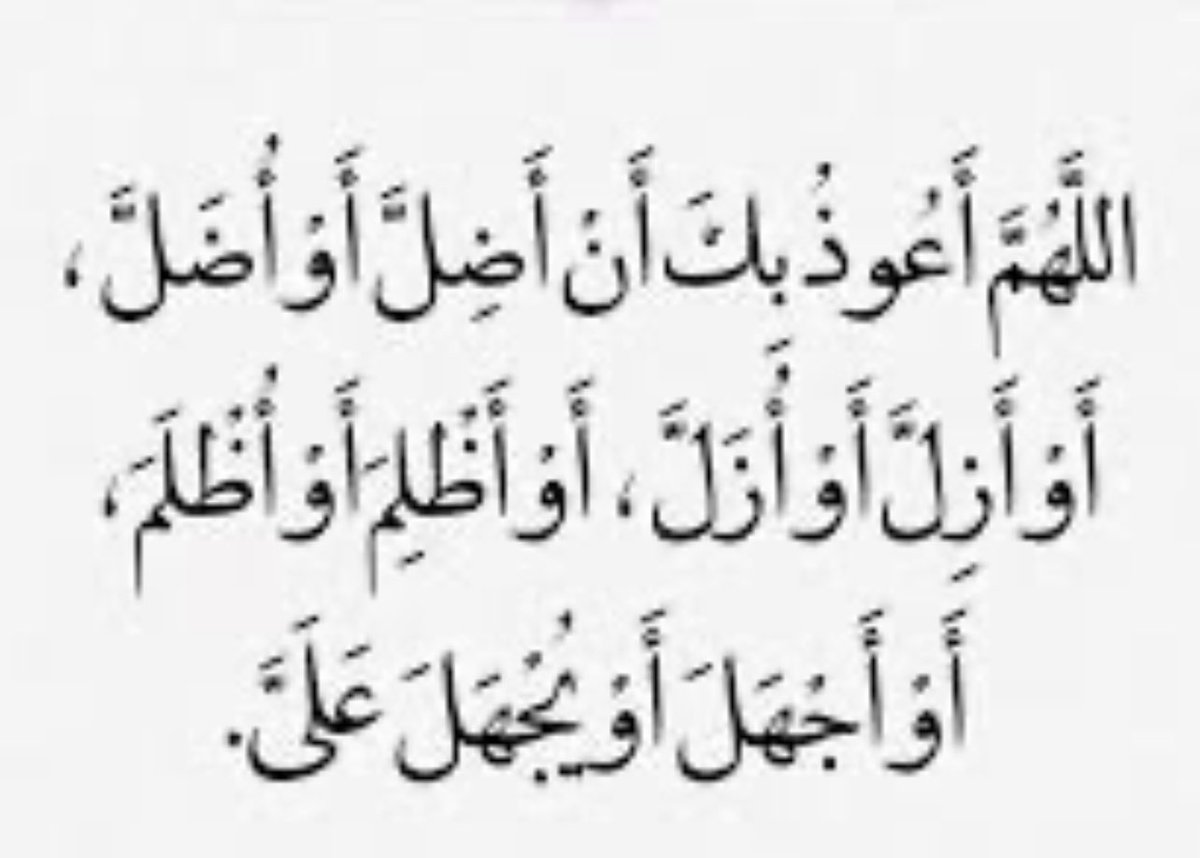 اللَّهُمَّ أَعُوذُ بِكَ أَنْ أَضِلَّ أَوْ أُضَلَّ،
أَوْ أَزِلَّ أَوْ أُزَلَّ، أَوْ أَظْلِمَ أَوْ أُظْلَمَ،
أَوْ أَجْهَلَ أَوْ يُجْهَلَ عَلَيَّ.